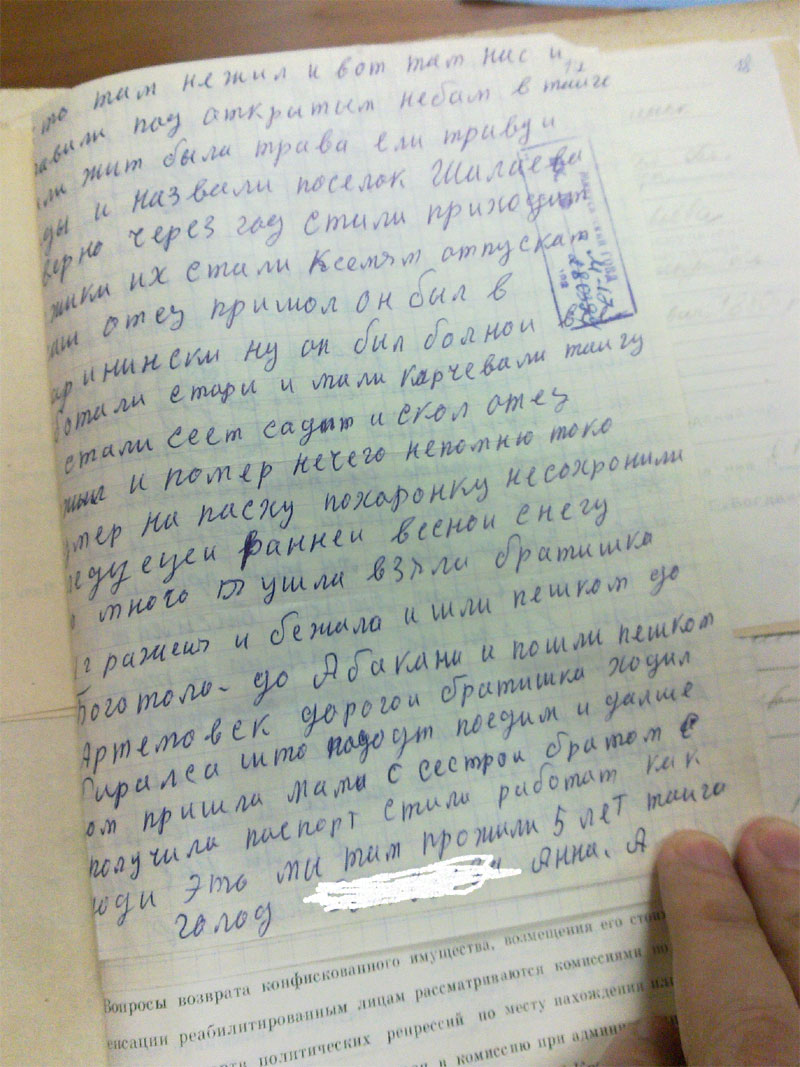 то там нежил и вот там нас и
равили под открытим небам в таиге
или жит была трава ели траву и
ды и назвали поселок Шалаева
верно через год стали приходит
жики их стали ксемям отпускат
аш отец пришол он был в
ар инински ну он бил болной
ботали стари и мали карчевали таигу
стали сеет садит и скол отец
и помер нечего непомню токо
мер на пасху похаронку несохронили
едующеи раннеи веснои снегу
много ушла взяли братишка
и бежала и шли пешком до
Боготола до Абакана и пошли пешком
Артемовск дорогои братишка ходил
бирался што пододут поедим и далше
ом пришла мама с сестрои братом с
получила паспорт стала работат как
юди Это ми там прожили 5 лет таига
голод Анна. А
18
Вопросы возврата конфискованного имущества, возмещения его стои
енсации реабилитированным лицам рассматриваются комиссиями по
политических репрессий по месту нахождения или
в комиссию при админи